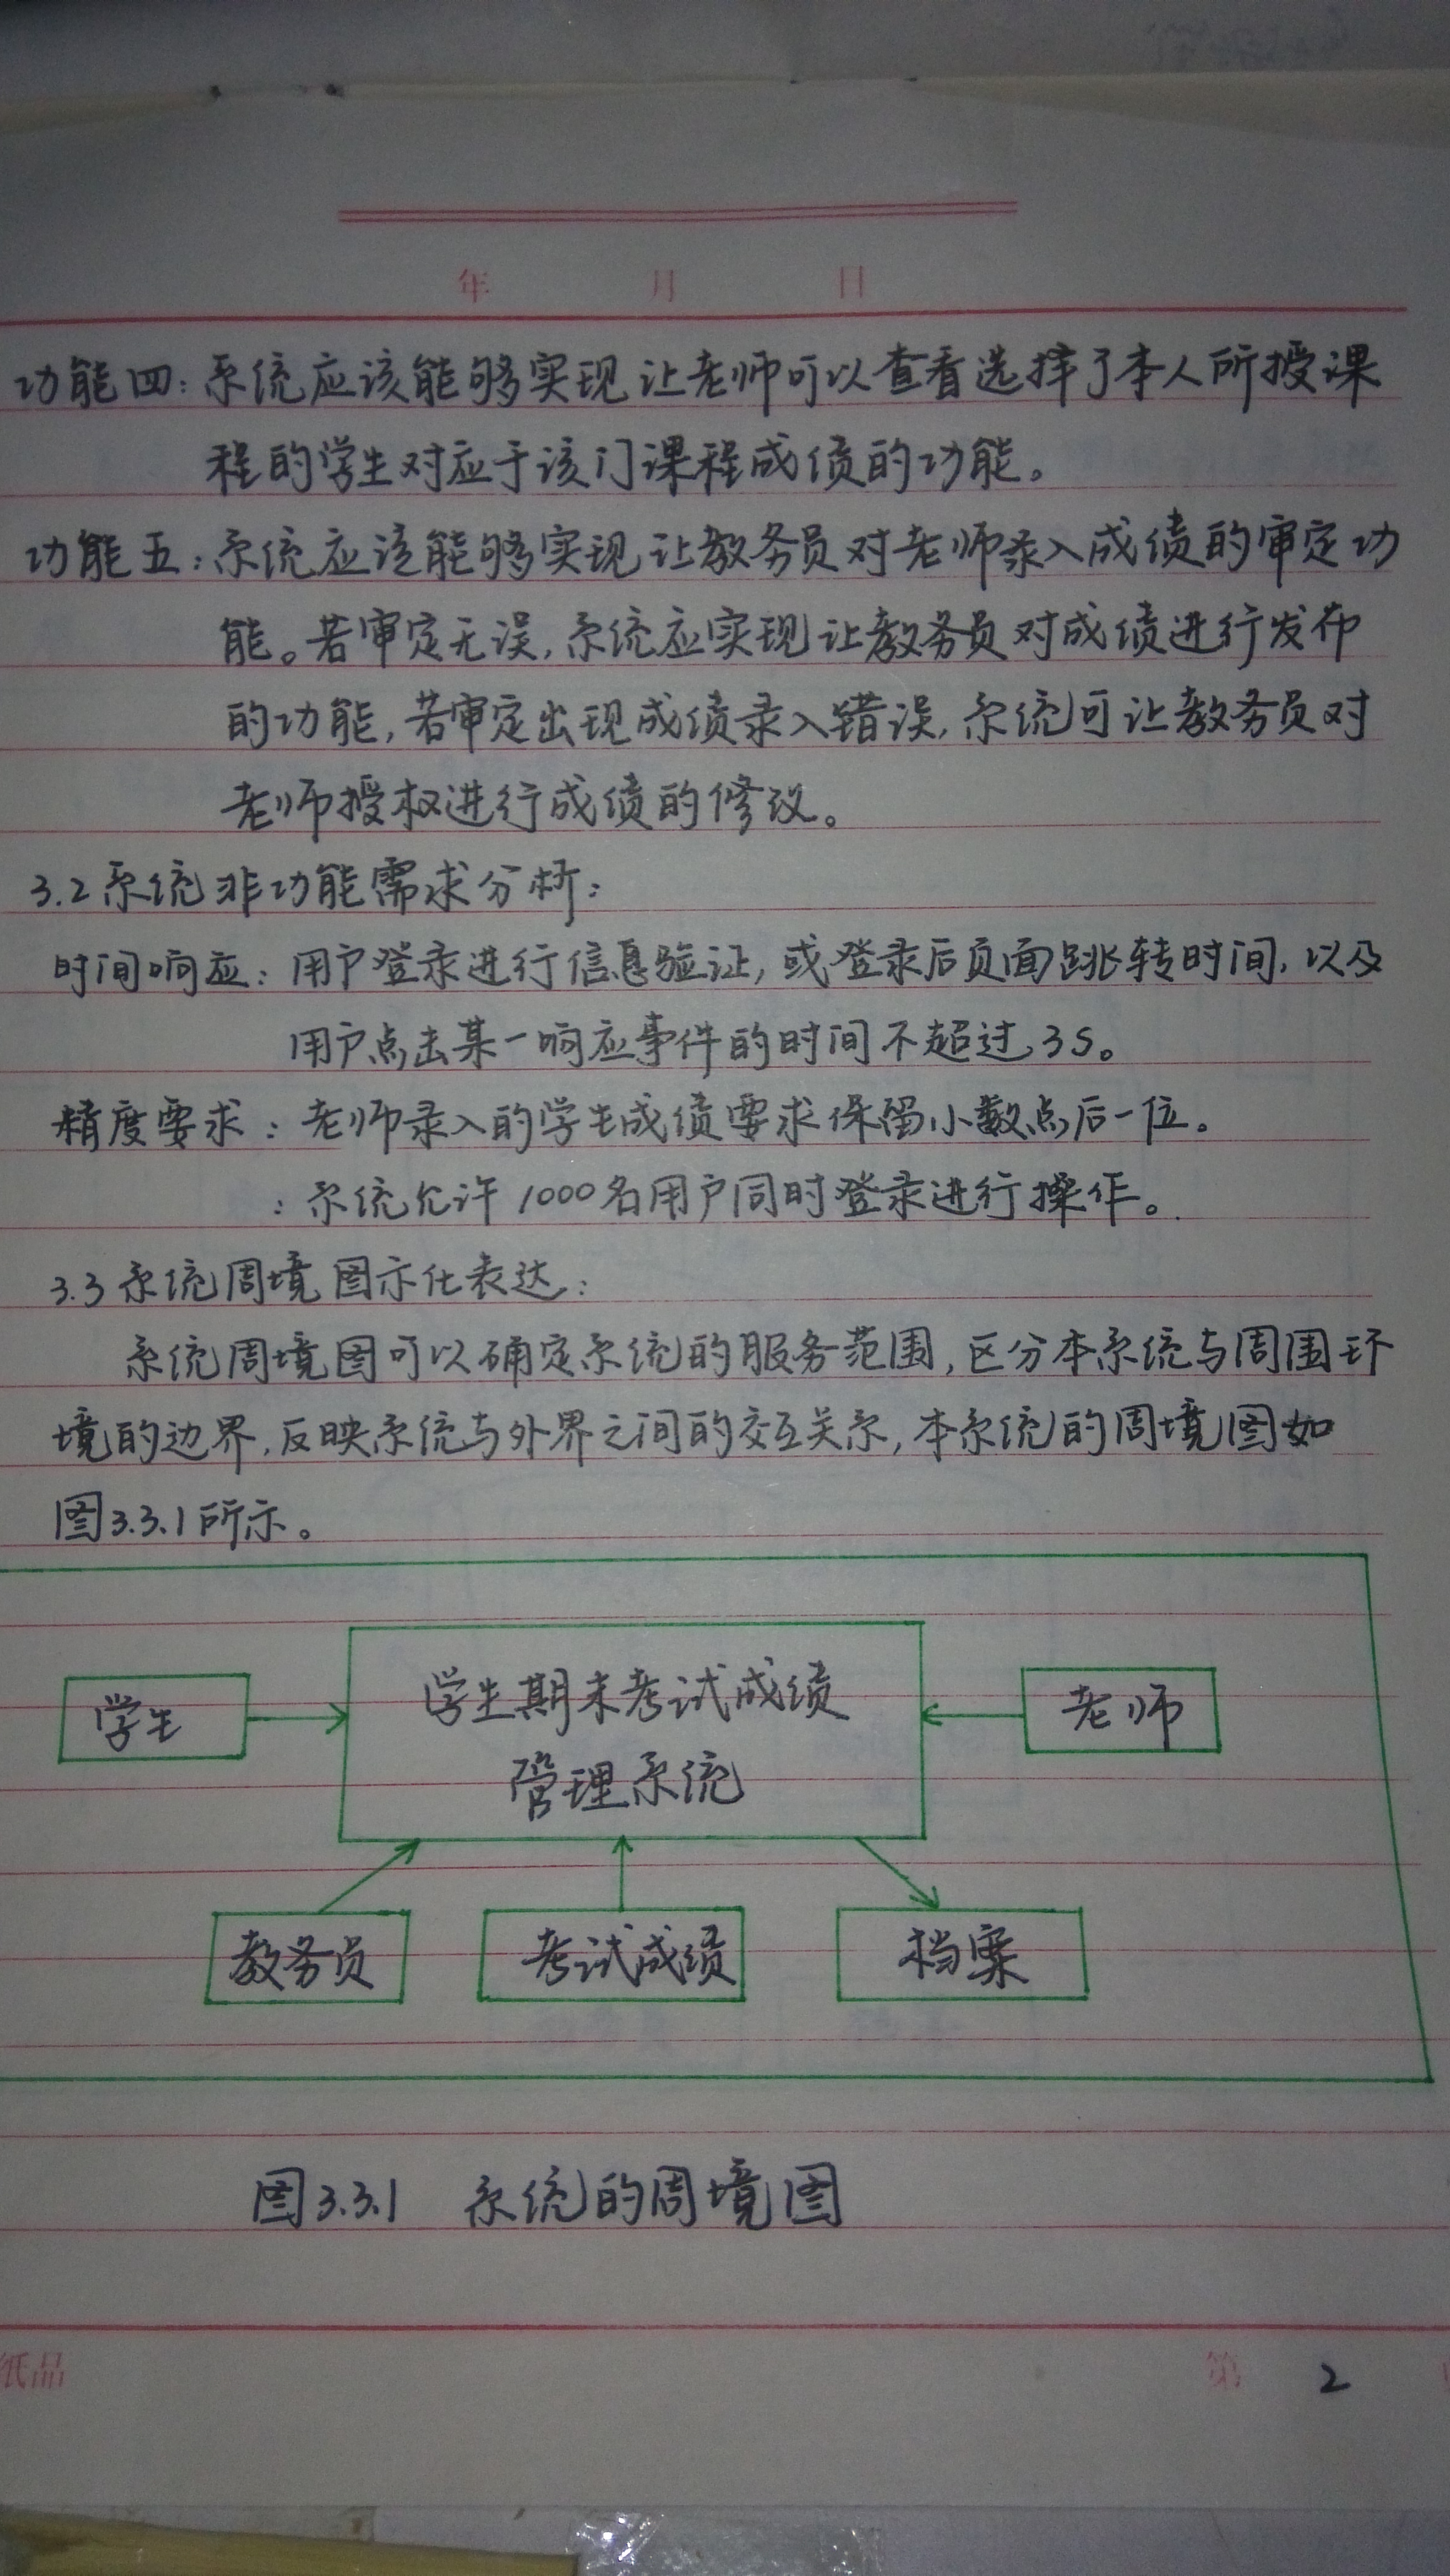 年 月 日
功能四:系统应该能够实现让老师可以查看选择了本人所授课
程的学生对应于该门课程成绩的功能。
功能五:系统应该能够实现让教务员对老师录入成绩的审定功
能。若审定无误,系统应实现让教务员对成绩进行发布
的功能,若审定出现成绩录入错误,系统可让教务员对
老师授权进行成绩的修改。
3.2系统非功能需求分析:
时间响应:用户登录进行信息验证,或登录后页面跳转时间,以及
用户点击某一响应事件的时间不超过3S。
精度要求:老师录入的学生成绩要求保留小数点后一位。
:系统允许1000名用户同时登录进行操作。
3.3系统周境图示化表达:
系统周境图可以确定系统的服务范围,区分本系统与周围环
境的边界,反映系统与外界之间的交互关系,本系统的周境图如
图3.3.1所示。
学生
学生期末考试成绩
管理系统
老师
教务员
考试成绩
档案
图3.3.1 系统的周境图
纸品
第 2